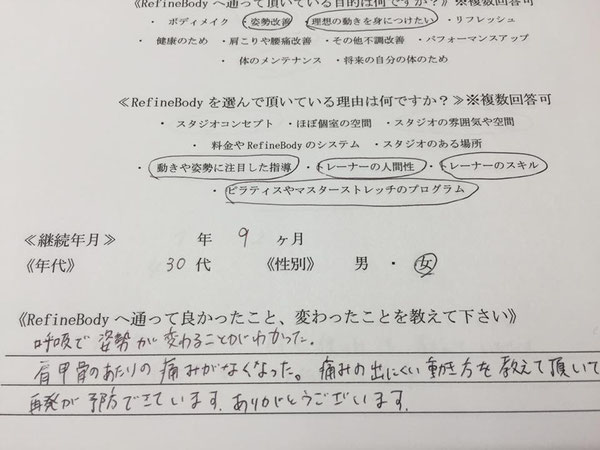 ≪RefineBody へ通って頂いている目的は何ですか？≫※複数回答可
・ボディメイク ・姿勢改善 ・理想の動きを身につけたい ・リフレッシュ
・健康のため ・肩こりや腰痛改善 ・その他不調改善 ・パフォーマンスアップ
・体のメンテナンス ・将来の自分の体のため
≪RefineBody を選んで頂いている理由は何ですか？≫※複数回答可
・スタジオコンセプト ・ほぼ個室の空間 ・スタジオの雰囲気や空間
・料金や RefineBody のシステム ・スタジオのある場所
・動きや姿勢に注目した指導 ・トレーナーの人間性 ・トレーナーのスキル
・ピラティスやマスターストレッチのプログラム
≪継続年月≫ 年 9 ヶ月
《年代》 30 代 《性別》 男 ・ 女
《RefineBody へ通って良かったこと、変わったことを教えて下さい》
呼吸で姿勢が変わることがわかった。
肩甲骨のあたりの痛みがなくなった。痛みの出にくい動き方を教えて頂いて
再発が予防できています。ありがとうございます。